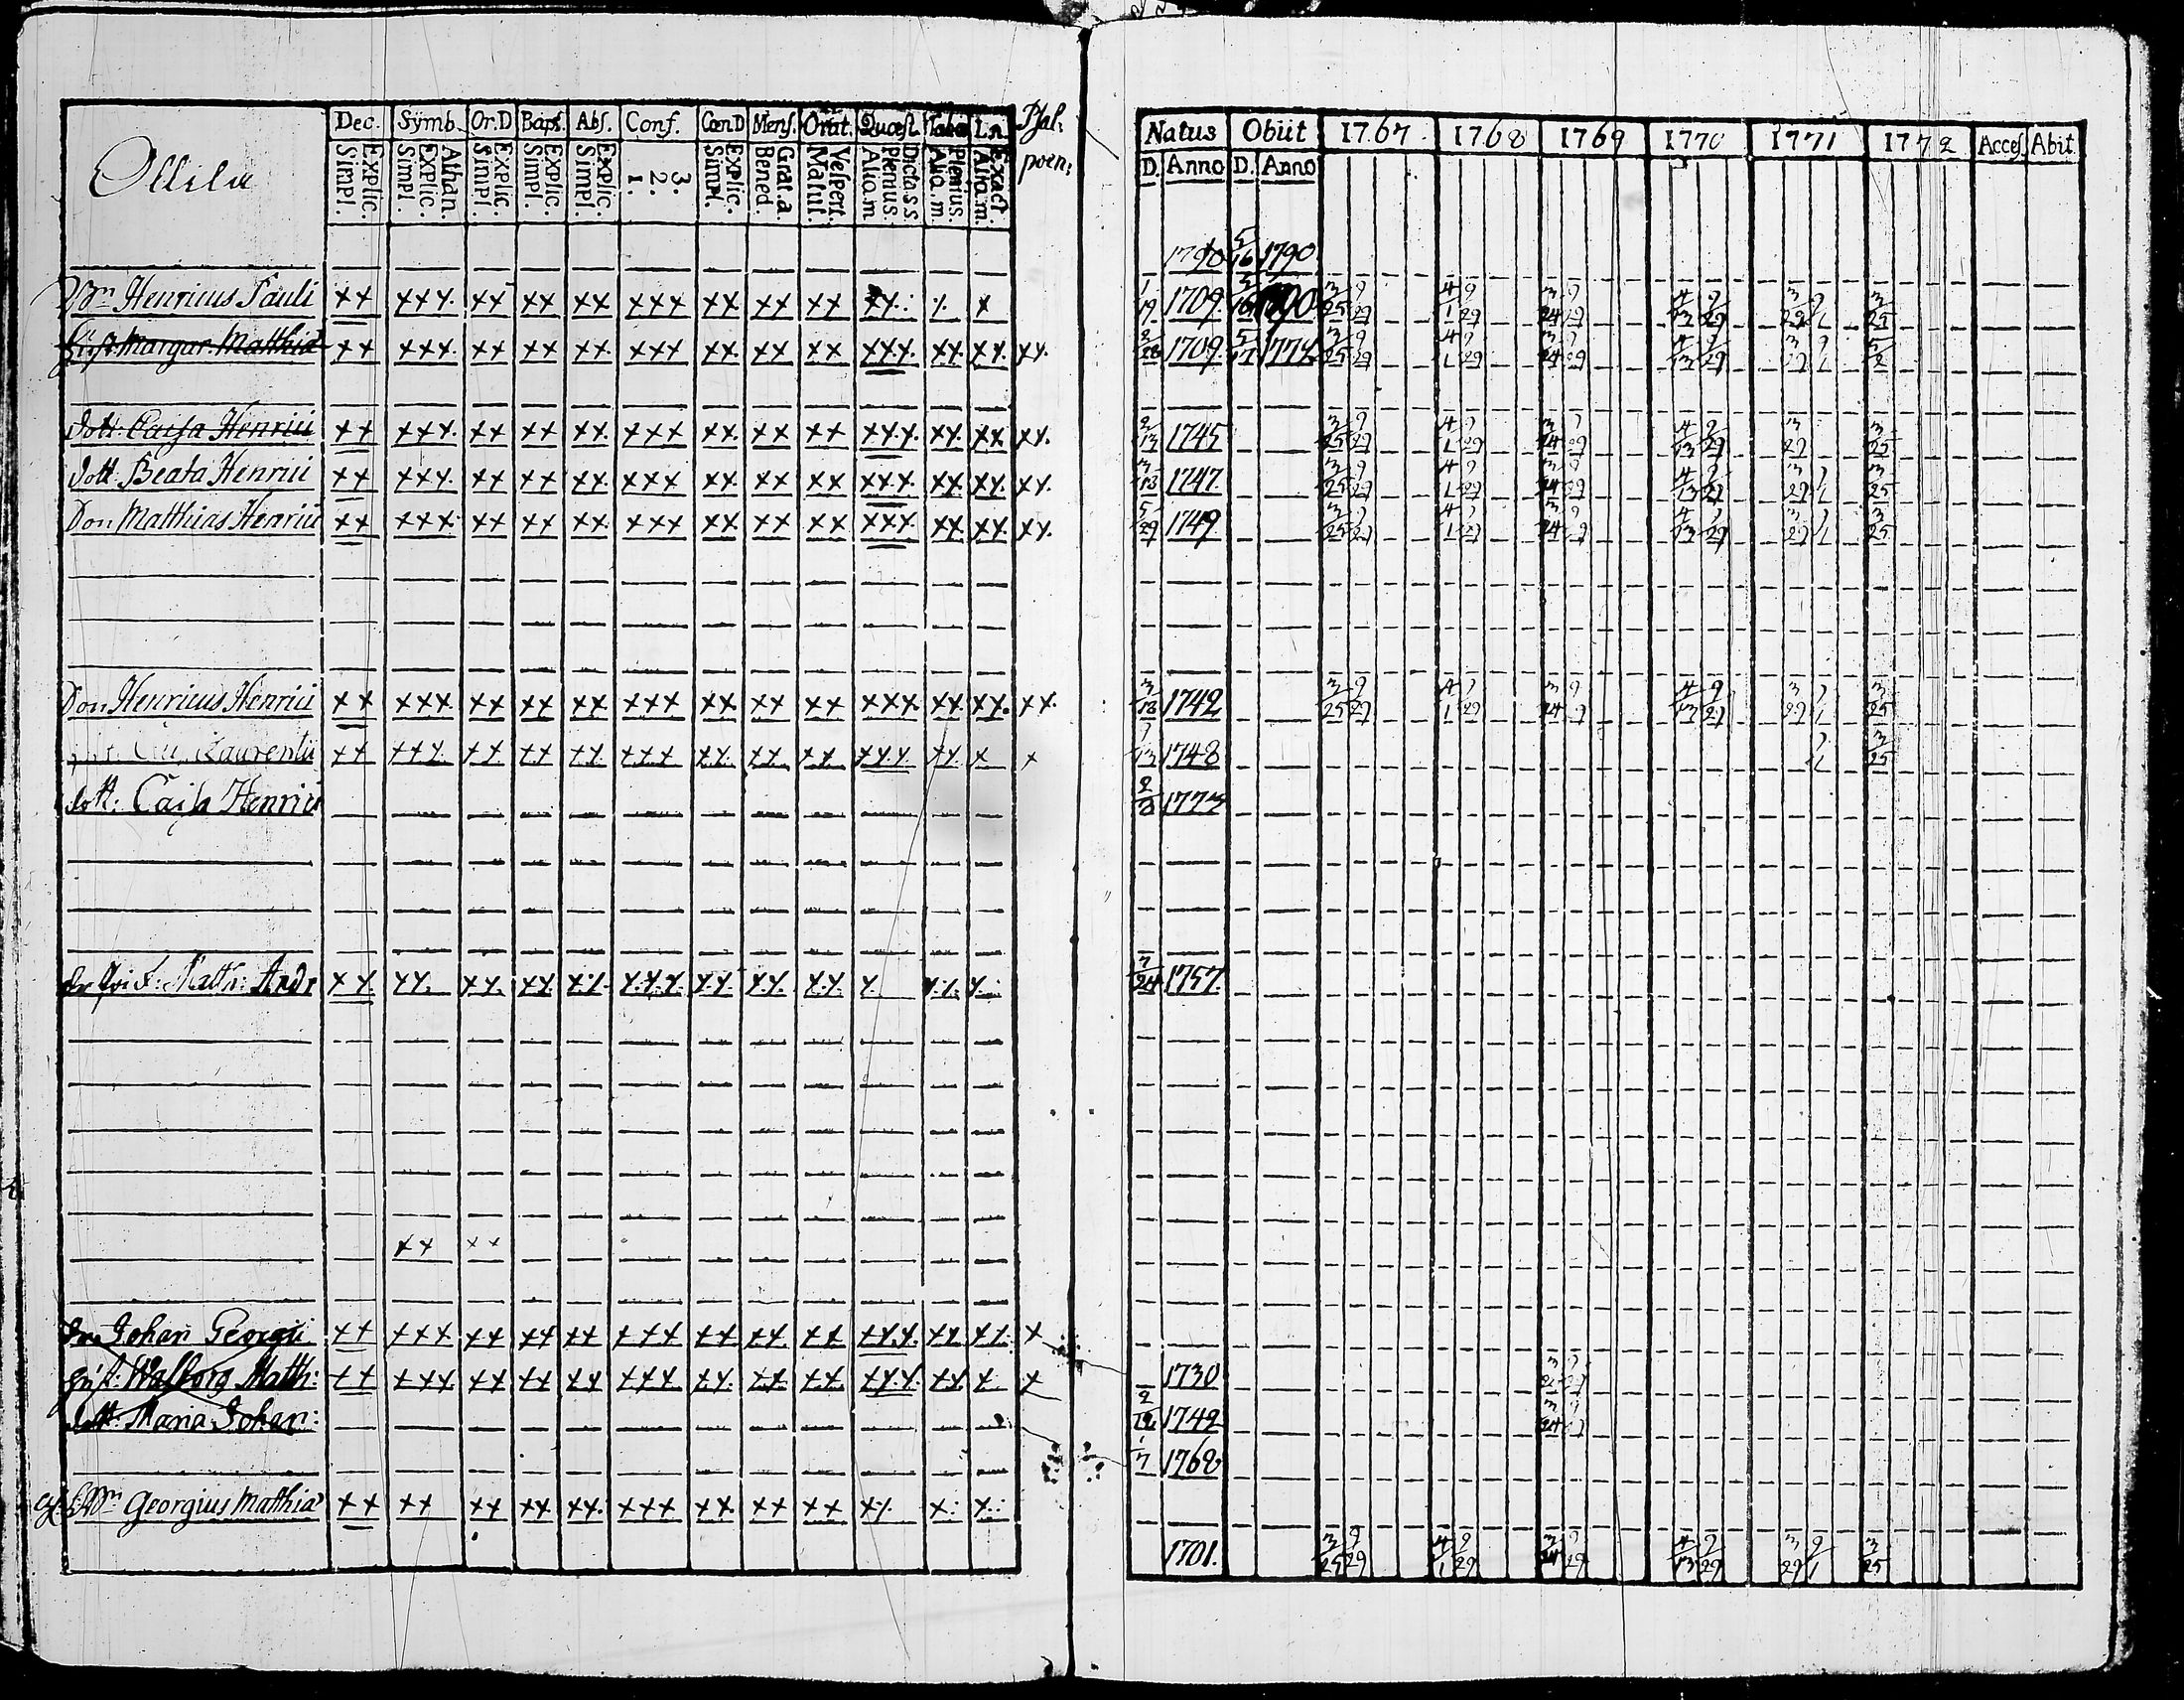 Ollila
Dec. Symb. Or.D Bapt. Abs. Conf. CœnD Mens. Orat. Quæst. Tabæ Ln. Psal:
Simpl. Explic. Simpl. Explic. Athan. Simpl. Explic. Simpl. Explic. Simpl. Explic. 1. 2. 3. Simpl. Explic. Bened. Grat.a. Matut. Vespert. Aliq.m Plenius. Dicta.s.s. Aliq.m. Plenius. Aliq.m. Exact. poen:
Henricus Pauli xx xxx xx xx xx xxx xx xx xx xx x x
Margar. Matthiæ xx xxx xx xx xx xxx xx xx xx xxx xx xx xx
dott. Caisa Henrici xx xxx xx xx xx xxx xx xx xx xxx xx xx xx
dott. Beata Henrici xx xxx xx xx xx xxx xx xx xx xxx xx xx xx
Don Matthias Henrici xx xxx xx xx xx xxx xx xx xx xxx xx xx xx
Don Henricus Henrici xx xxx xx xx xx xxx xx xx xx xxx xx xx xx
Laurentii xx xxx xx xx xx xxx xx xx xx xxx xx x x
dott: Caisa Henrici
Matth: Andr xx xx xx xx xx xxx xx xx xx x xx x
xx xx
Johan Georgii xx xxx xx xx xx xxx xx xx xx xxx xx xx x
hust: Walborg Matth: xx xxx xx xx xx xxx xx xx xx xxx xx x x
dott: Maria Johan:
Georgius Matthiæ xx xx xx xx xx xxx xx xx xx xx x x
Natus Obiit 1767 1768 1769 1770 1771 1772 Acces. Abit
D. Anno D. Anno
1790 5/16 1790
1/19 1709 3/25 9/29 4/1 9/29 3/24 9/29 4/13 9/29 3/29 9/1 3/25
2/28 1709 5/17 1774 3/25 9/29 4/1 9/29 3/24 9/29 4/13 9/29 3/29 9/1 5/2
2/13 1745 3/25 9/29 4/1 9/29 3/24 9/29 4/13 9/29 3/29 3/25
3/13 1747 3/25 9/29 4/1 9/29 3/24 9/29 4/13 9/29 3/29 9/1 3/25
5/29 1749 3/25 9/29 4/1 9/29 3/24 9/29 4/13 9/29 3/29 9/1 3/25
3/18 1742 3/25 9/29 4/1 9/29 3/24 9/29 4/13 9/29 3/29 9/1 3/25
7/13 1748 9/1 3/25
2/8 1773
7/24 1757
1730
1742
1/7 1768
1701. 3/25 9/29 4/1 9/29 3/24 9/29 4/13 9/29 3/29 9/1 3/25